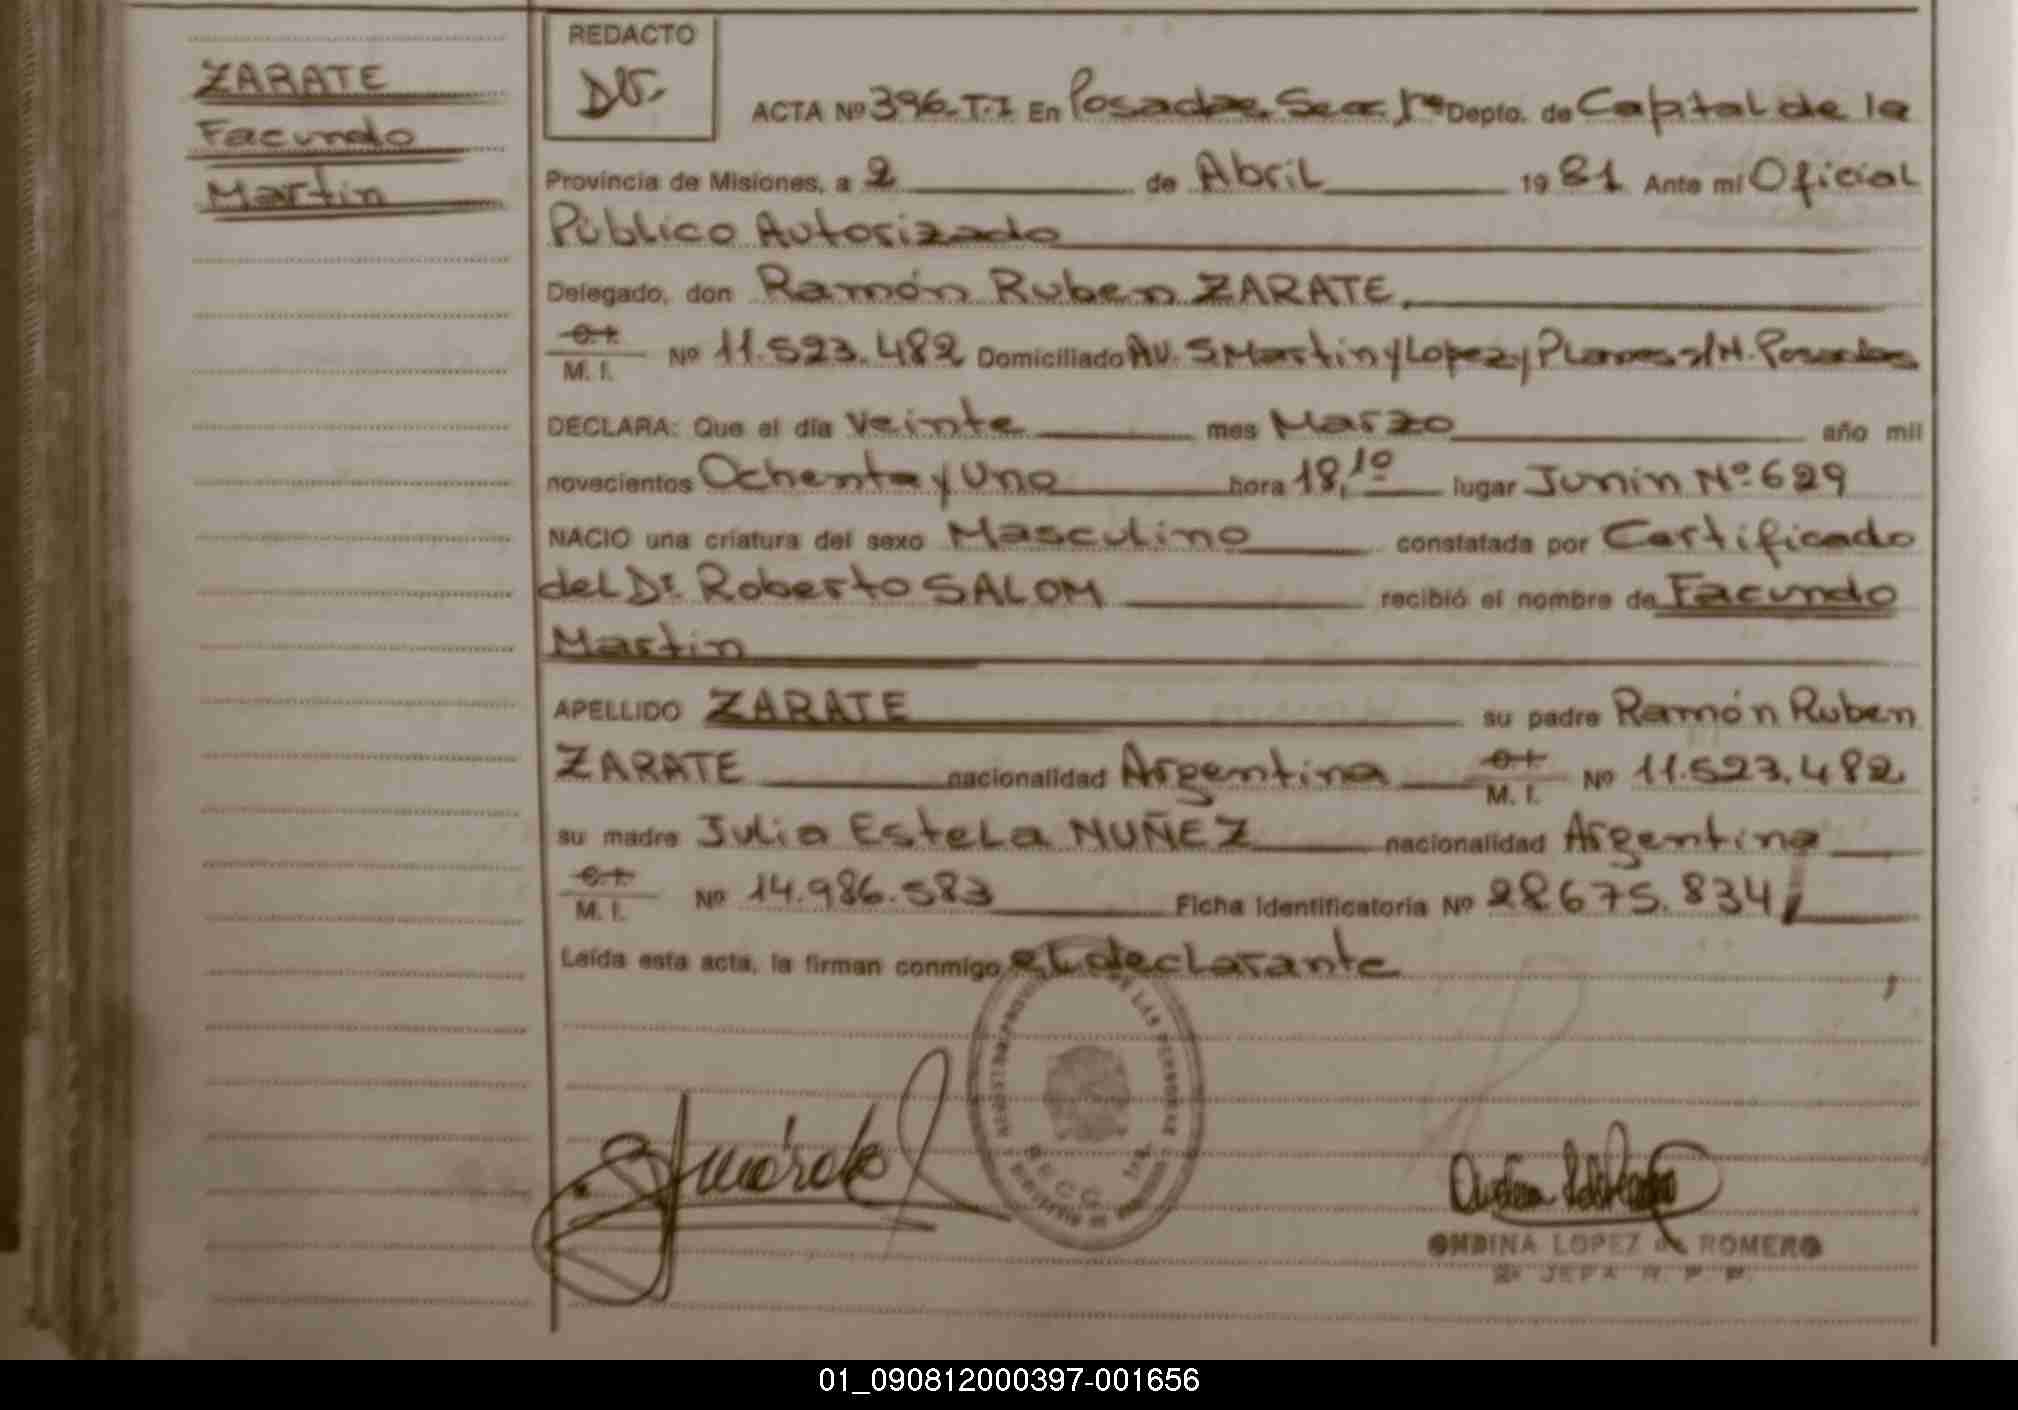 ZARATE
Facundo
Martin
REDACTO
ACTA Nº 396-T.I En Posadas Secc. 1ª Depto. de Capital de la
Provincia de Misiones, a 2 de Abril 1981 Ante mí Oficial
Público Autorizado
Delegado, don Ramón Ruben ZARATE,
C.I.
M. I. Nº 11.523.482 Domiciliado Av. S. Martin y Lopez y Planes s/N. Posadas
DECLARA: Que el día Veinte mes Marzo año mil
novecientos Ochenta y Uno hora 18,10 lugar Junin Nº 629
NACIO una criatura del sexo Masculino constatada por Certificado
del Dr. Roberto SALOM recibió el nombre de Facundo
Martin
APELLIDO ZARATE su padre Ramón Ruben
ZARATE nacionalidad Argentina C.I.
M. I. Nº 11.523.482
su madre Julia Estela NUÑEZ nacionalidad Argentina
C.I.
M. I. Nº 14.986.583 Ficha identificatoria Nº 28.675.834
Leída esta acta, la firman conmigo el declarante,
DE LAS PERSONAS
OMBINA LOPEZ de ROMERO
2º JEFA R. P. P.
01_090812000397-001656